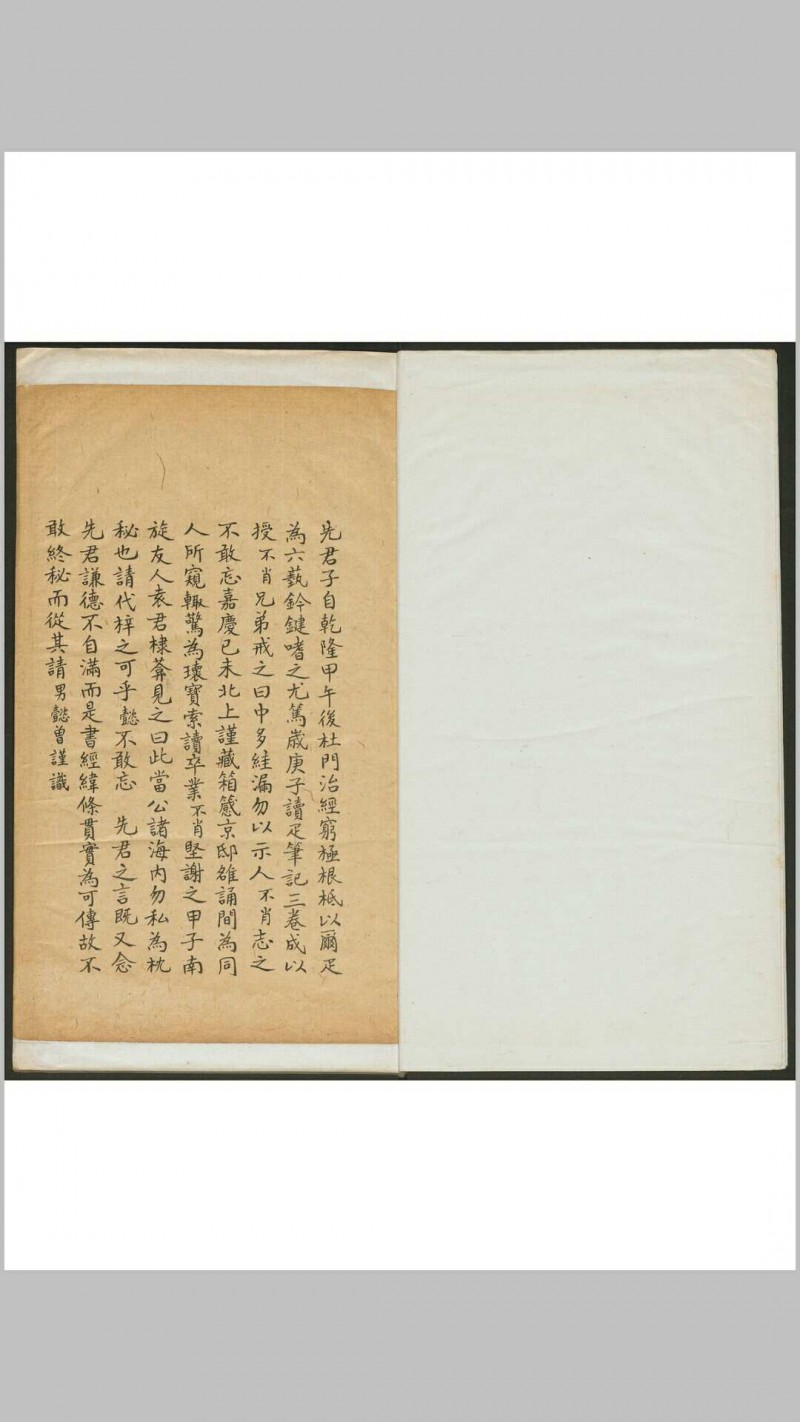 先君子自乾隆甲午後杜門治經窮極根柢以爾疋
為六藝鈐鍵嗜之尤篤歲庚子讀疋筆記三卷成以
授不肖兄弟戒之曰中多絓漏勿以示人不肖志之
不敢忘嘉慶己未北上謹藏箱篋京邸雒誦間為同
人所窺輒驚為瓌寶索讀卒業不肖堅謝之甲子南
旋友人袁君棣莾見之曰此當公諸海內勿私為枕
秘也請代梓之可乎懿不敢忘 先君之言既又念
先君謙德不自滿而是書經緯條貫實為可傳故不
敢終秘而從其請男懿曾謹識